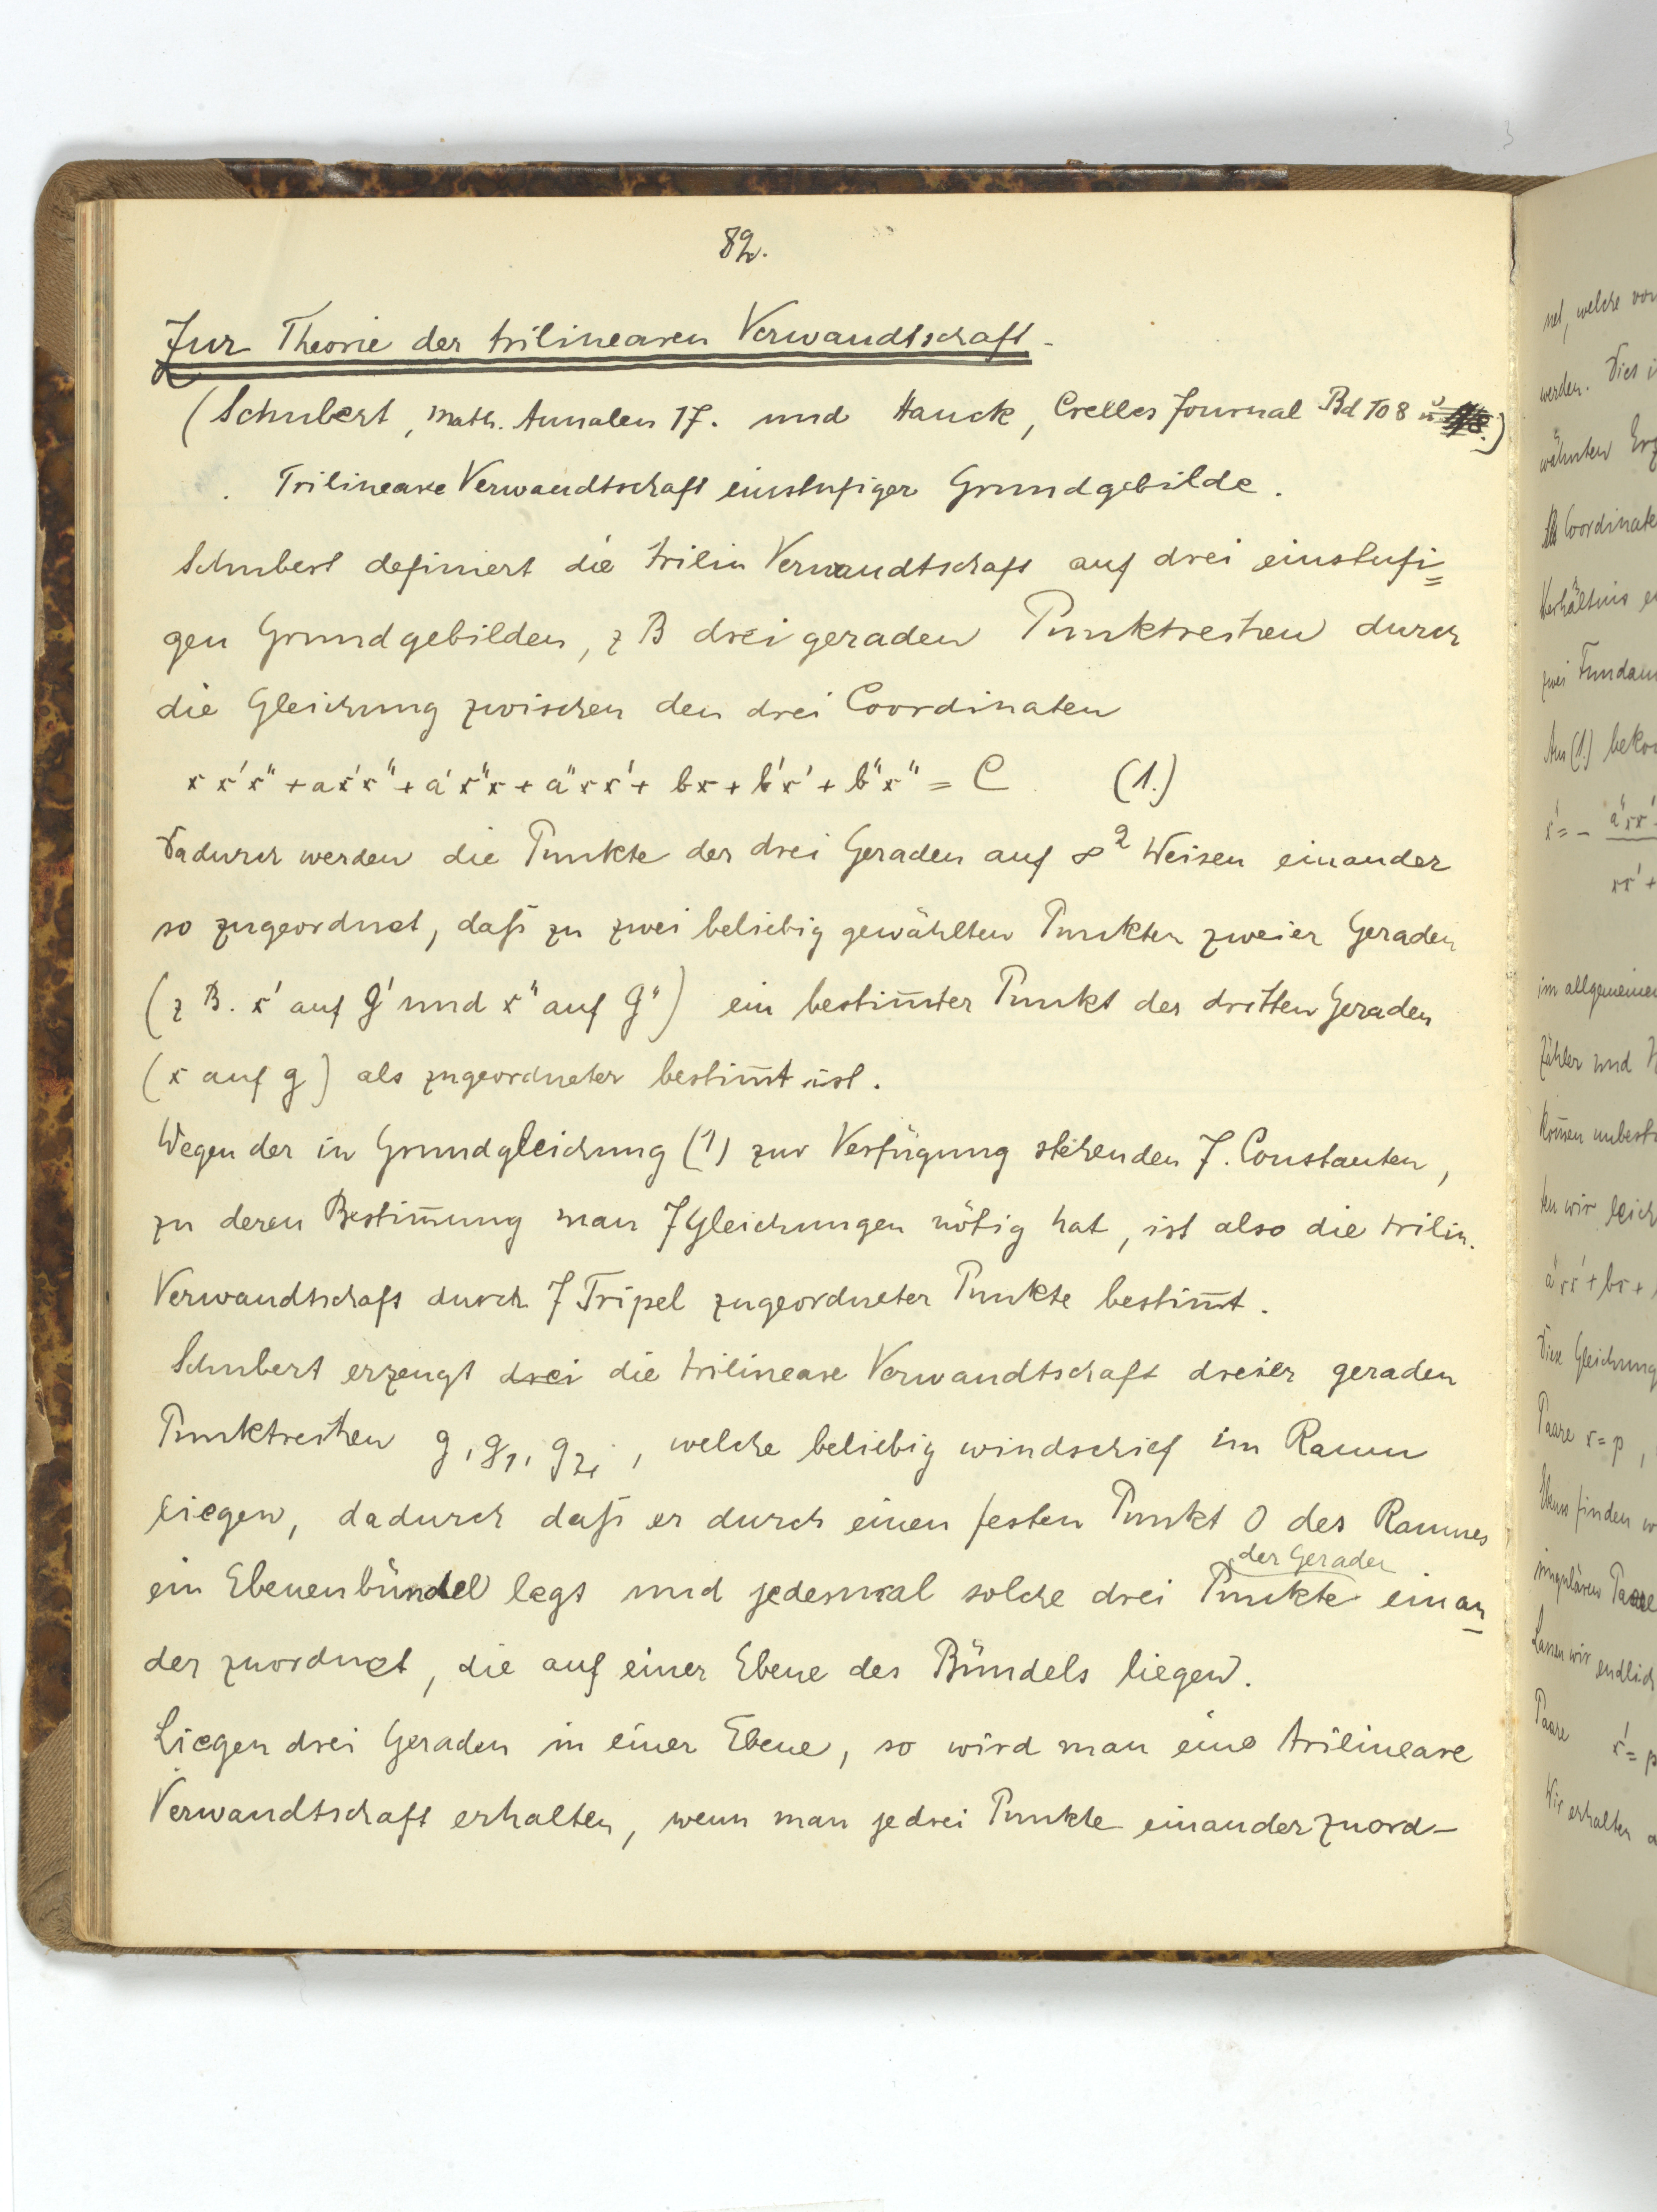 82.
Zur Theorie der trilinearen Verwandtschaft.
(Schubert, Math. Annalen 17. und Hauck, Crelles Journal Bd 108 u.)
Trilineare Verwandtschaft einstufiger Grundgebilde.
Schubert definiert die trilin Verwandtschaft auf drei einstufi=
gen Grundgebilden, z B drei geraden Punktreihen durch
die Gleichung zwischen den drei Coordinaten
x x' x" + a x' x" + a' x" x + a" x x' + b x + b' x' + b" x" = C (1.)
Dadurch werden die Punkte der drei Geraden auf ∞² Weisen einander
so zugeordnet, daß zu zwei beliebig gewählten Punkten zweier Geraden
(z B. x' auf g' und x" auf g") ein bestim̅ter Punkt der dritten Geraden
(x auf g) als zugeordneter bestim̅t ist.
Wegen der in Grundgleichung (1) zur Verfügung stehenden 7. Constanten,
zu deren Bestim̅ung man 7 Gleichungen nötig hat, ist also die trilin.
Verwandtschaft durch 7 Tripel zugeordneter Punkte bestim̅t.
Schubert erzeugt drei die trilineare Verwandtschaft dreier geraden
Punktreihen g, g₁, g₂, , welche beliebig windschief im Raum
liegen, dadurch daß er durch einen festen Punkt O des Raumes
der Geraden
ein Ebenenbündel legt und jedesmal solche drei Punkte einan
der zuordnet, die auf einer Ebene des Bündels liegen.
Liegen drei Geraden in einer Ebene, so wird man eine trilineare
Verwandtschaft erhalten, wenn man je drei Punkte einander zuord-
net, welche von
werden. Dies i
wähnten Erz
Coordinate
Verhältnis e
zwei Fundam
Aus (1.) beko
x' = - a" x x'
x x' +
im allgemeinen
Zähler und N
kom̅en unbest
ten wir leich
a" x x' + b x +
Diese Gleichung
Paare x = p ,
Ebenso finden w
singulären Paare
Lassen wir endlich
Paare x' = p
Wir erhalten a